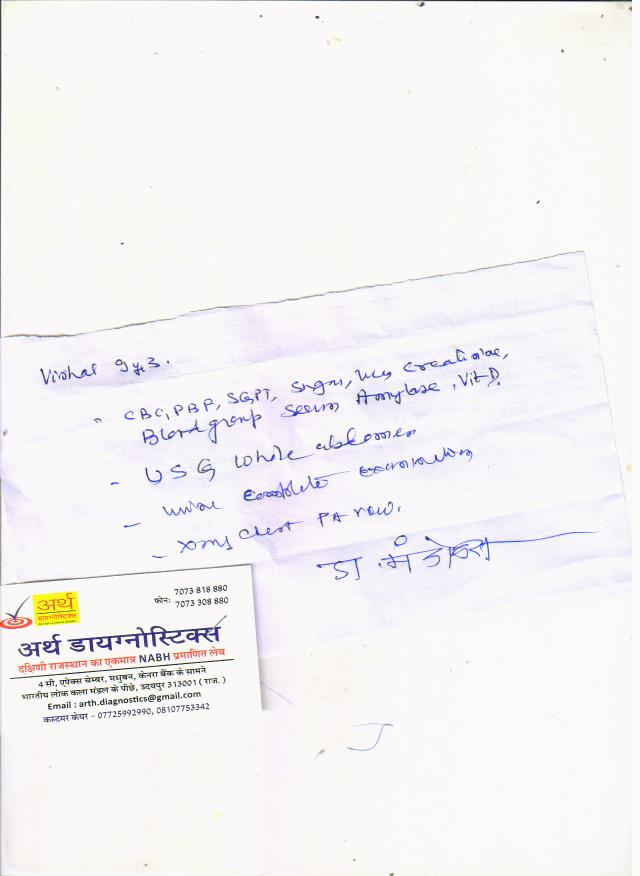 Vishal 9 yrs.
CBC, PBF, SGPT, Sugar, Urea Creatinine,
Blood group Serum Amylase, Vit-D.
- USG whole abdomen
- Urine complete examination
- Xray Chest PA view.
डा.
अर्थ
डायग्नोस्टिक्स
फोन: 7073 818 880
7073 308 880
अर्थ डायग्नोस्टिक्स
दक्षिणी राजस्थान का एकमात्र NABH प्रमाणित लेब
4 सी, एपेक्स चेम्बर, मधुबन, केनरा बैंक के सामने
भारतीय लोक कला मंडल के पीछे, उदयपुर 313001 ( राज. )
Email : arth.diagnostics@gmail.com
कस्टमर केयर - 07725992990, 08107753342